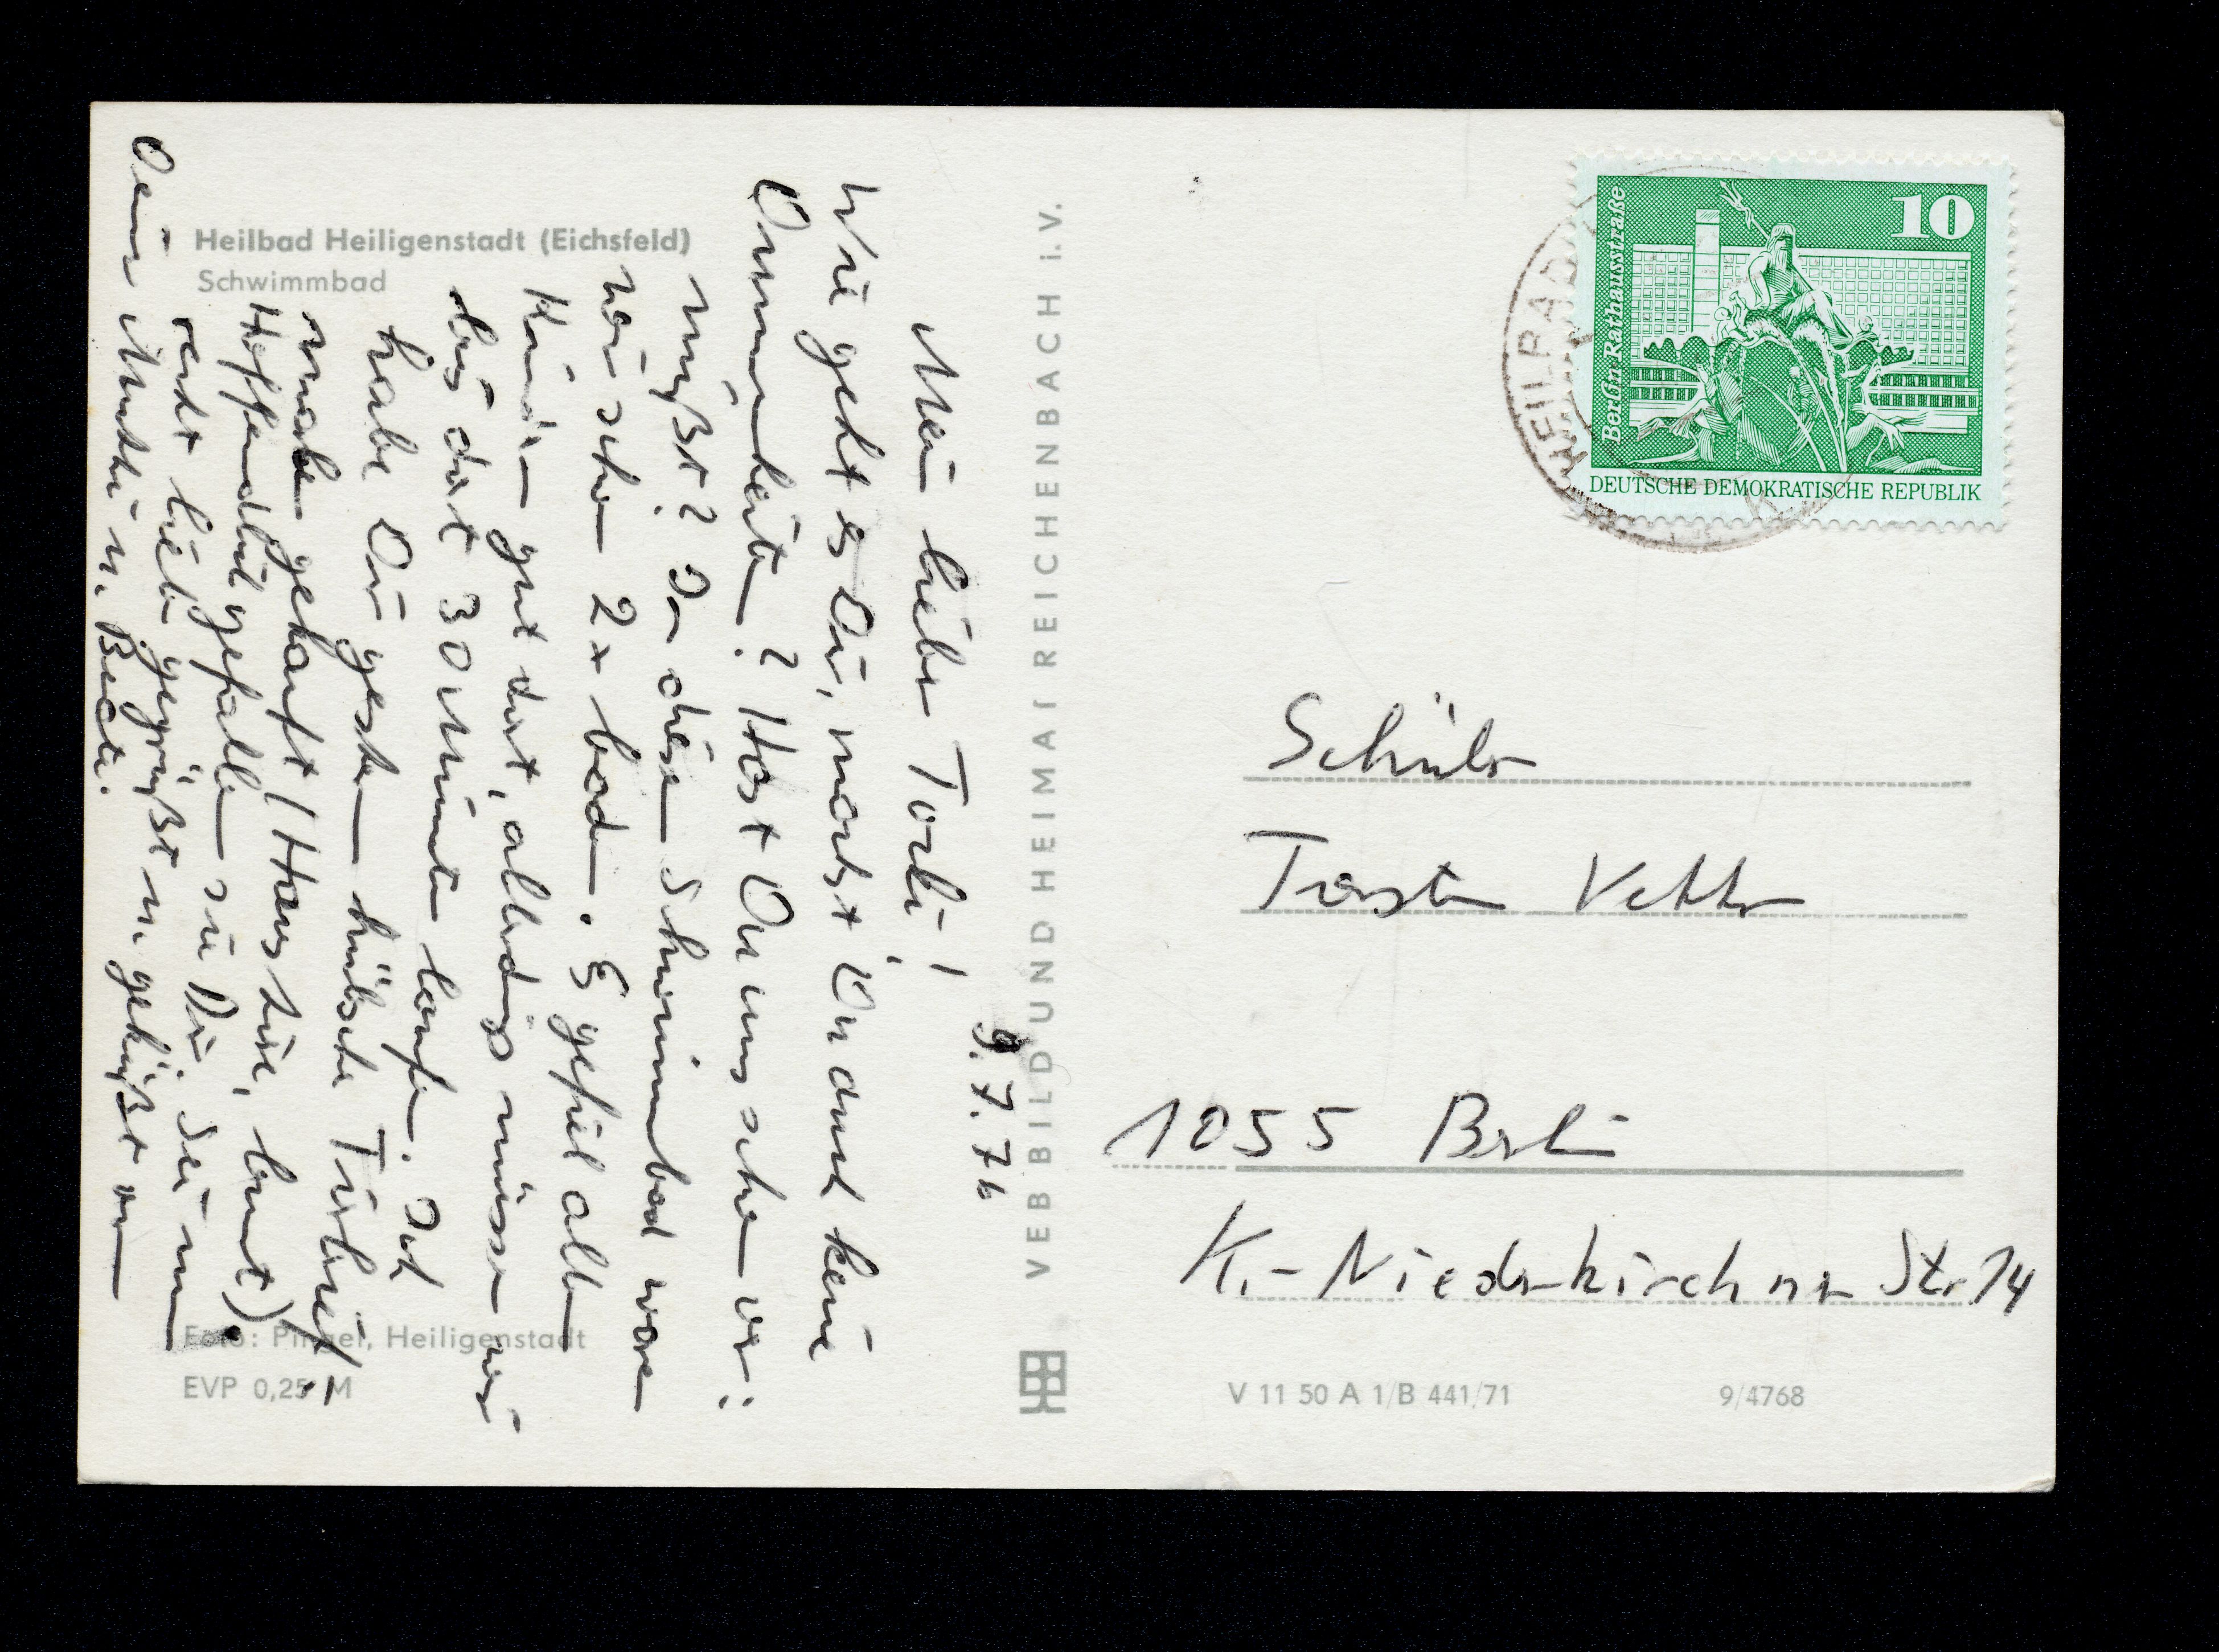 Heilbad Heiligenstadt (Eichsfeld)
Schwimmbad
9.7.76
Mein lieber Torti!
Wie geht es Dir, machst Du auch keine
Dummheiten? Hast Du uns schon ver-
mißt? In diesem Schwimmbad waren
wir schon 2x baden. Es gefiel allen
Kindern gut dort, allerdings müssen wir
bis dort 30 Minuten laufen. Ich
habe Dir gestern hübsche Tierbrief-
marken gekauft (Haustiere, bunt).
Hoffentlich gefallen sie Dir. Sei nun
recht lieb gegrüßt u. geküßt von
Deiner Mutti u. Beate.
Foto: Pingel, Heiligenstadt
EVP 0,25 M
VEB BILD UND HEIMAT REICHENBACH i. V.
10
Berlin Rathausstraße
DEUTSCHE DEMOKRATISCHE REPUBLIK
HEILBAD
Schüler
Torsten Vetter
1055 Berlin
K.-Niederkirchner Str. 14
V 11 50 A 1/B 441/71
9/4768